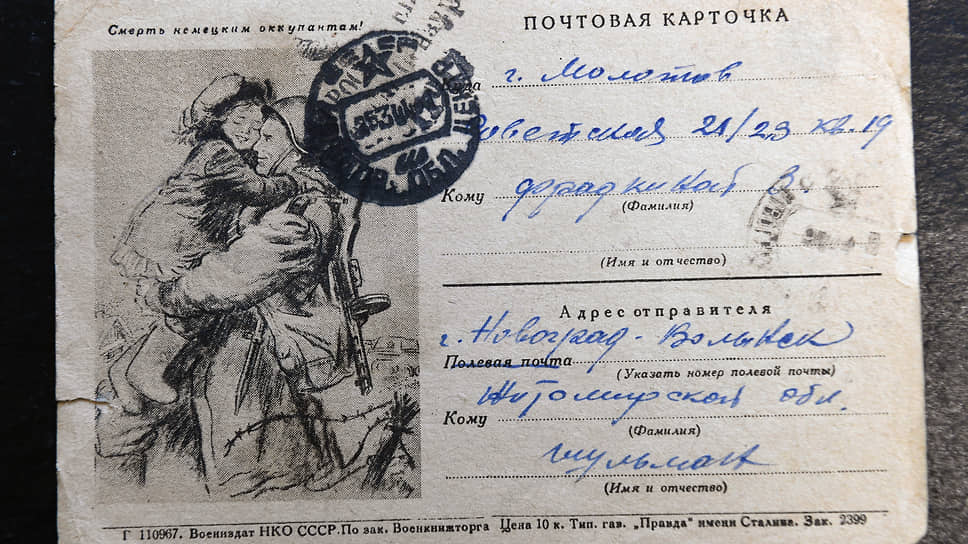 Смерть немецким оккупантам!
ПОЧТОВАЯ КАРТОЧКА
Куда г. Молотов
Советская 21/23 кв. 19
Кому
(Фамилия)
(Имя и отчество)
Адрес отправителя
г. Новоград-Волынск
Полевая почта
(Указать номер полевой почты)
Житомирской обл.
Кому
(Фамилия)
Шульман
(Имя и отчество)
Г 110967. Воениздат НКО СССР. По зак. Военкнижторга Цена 10 к. Тип. газ. „Правда" имени Сталина. Зак. 2399